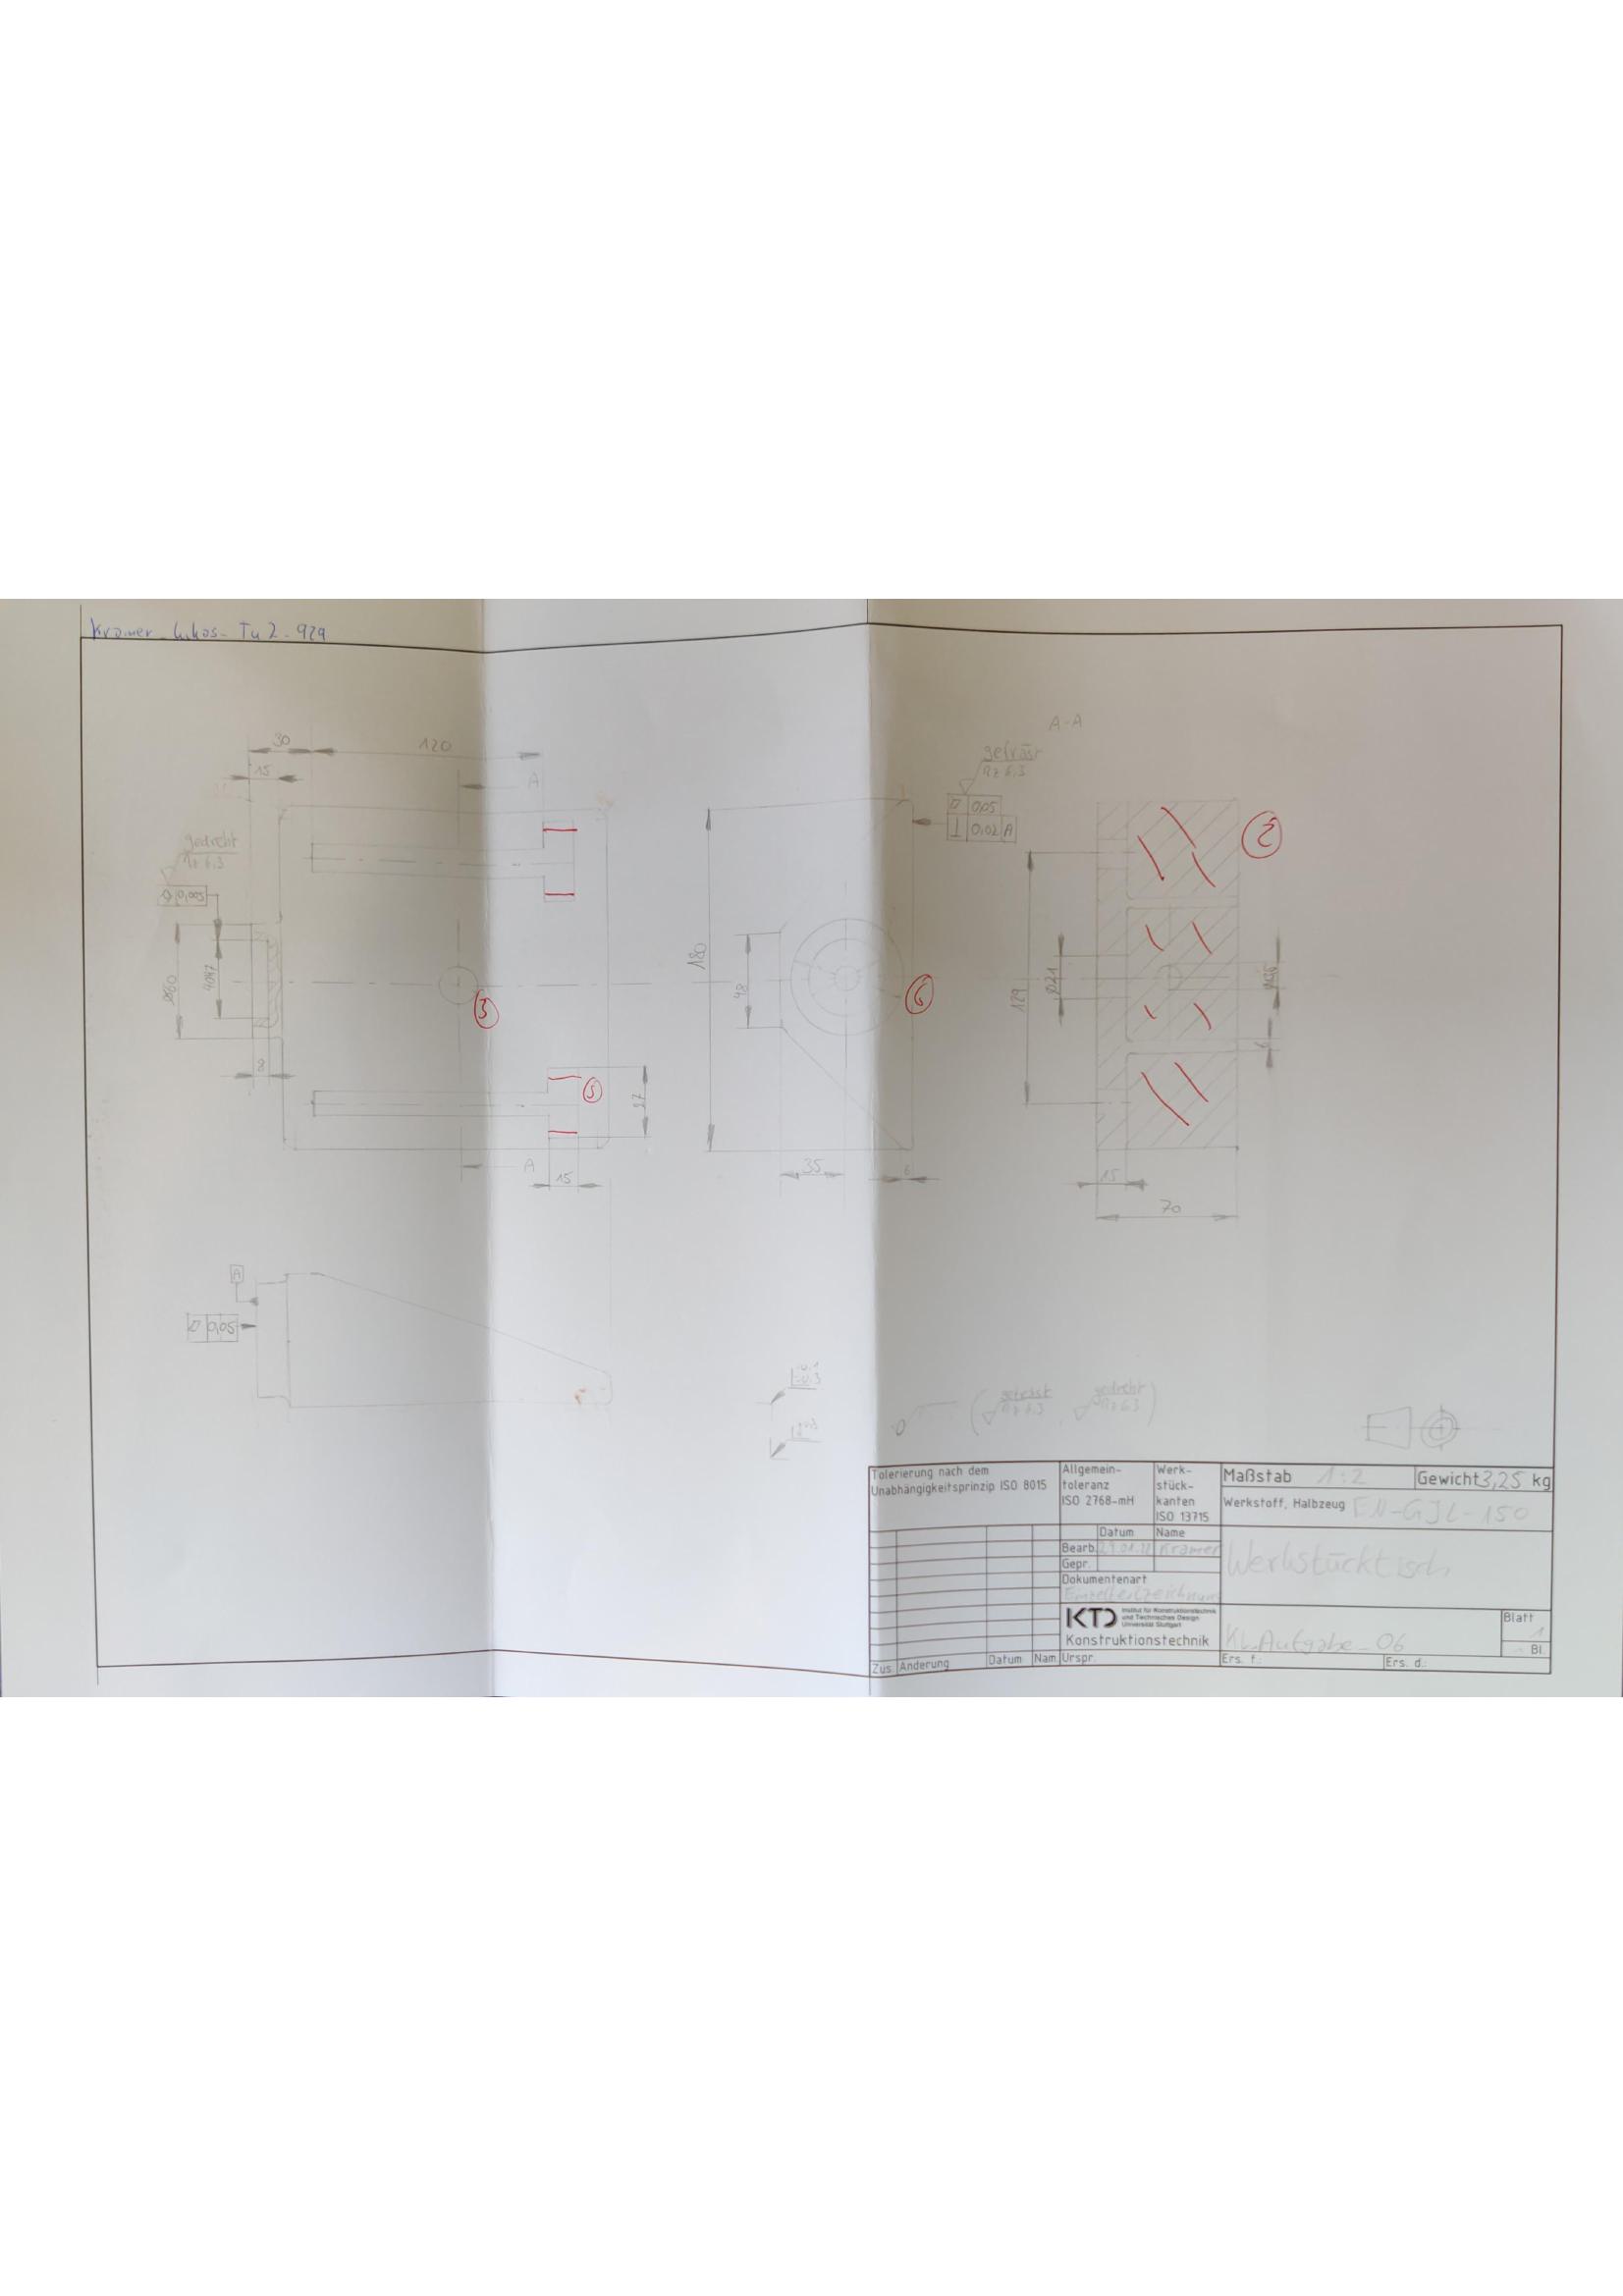 Kramer_Lukas_Tu2_929
A-A
30
120
15
A
gefräst
Rz 6.3
0,05
0,02 A
2
gedreht
Rz 6.3
0,005
Ø60
180
48
129
Ø21
3
6
8
5
27
A
15
35
6
15
70
A
0,05
gefräst
Rz 6.3
gedreht
Rz 6.3
Tolerierung nach dem
Unabhängigkeitsprinzip ISO 8015
Allgemein-
toleranz
ISO 2768-mH
Werk-
stück-
kanten
ISO 13715
Maßstab 1:2
Gewicht 3,25 kg
Werkstoff, Halbzeug EN-GJL-150
Datum Name
Bearb. Kramer
Gepr.
Werkstücktisch
Dokumentenart
Einzelteilzeichnung
KTD
Institut für Konstruktionstechnik
und Technisches Design
Universität Stuttgart
Konstruktionstechnik
KL_Aufgabe_06
Blatt
1
Bl.
Zus. Änderung Datum Nam. Urspr. Ers. f.: Ers. d.: